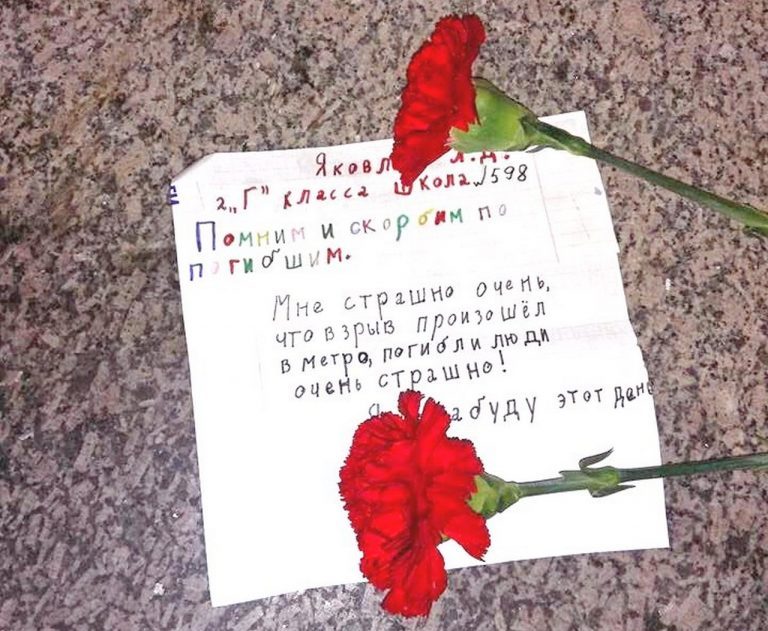 Яковл Л.Д.
2„Г" класса школа №598
Помним и скорбим по
погибшим.
Мне страшно очень,
что взрыв произошёл
в метро, погибли люди
очень страшно!
я абуду этот день